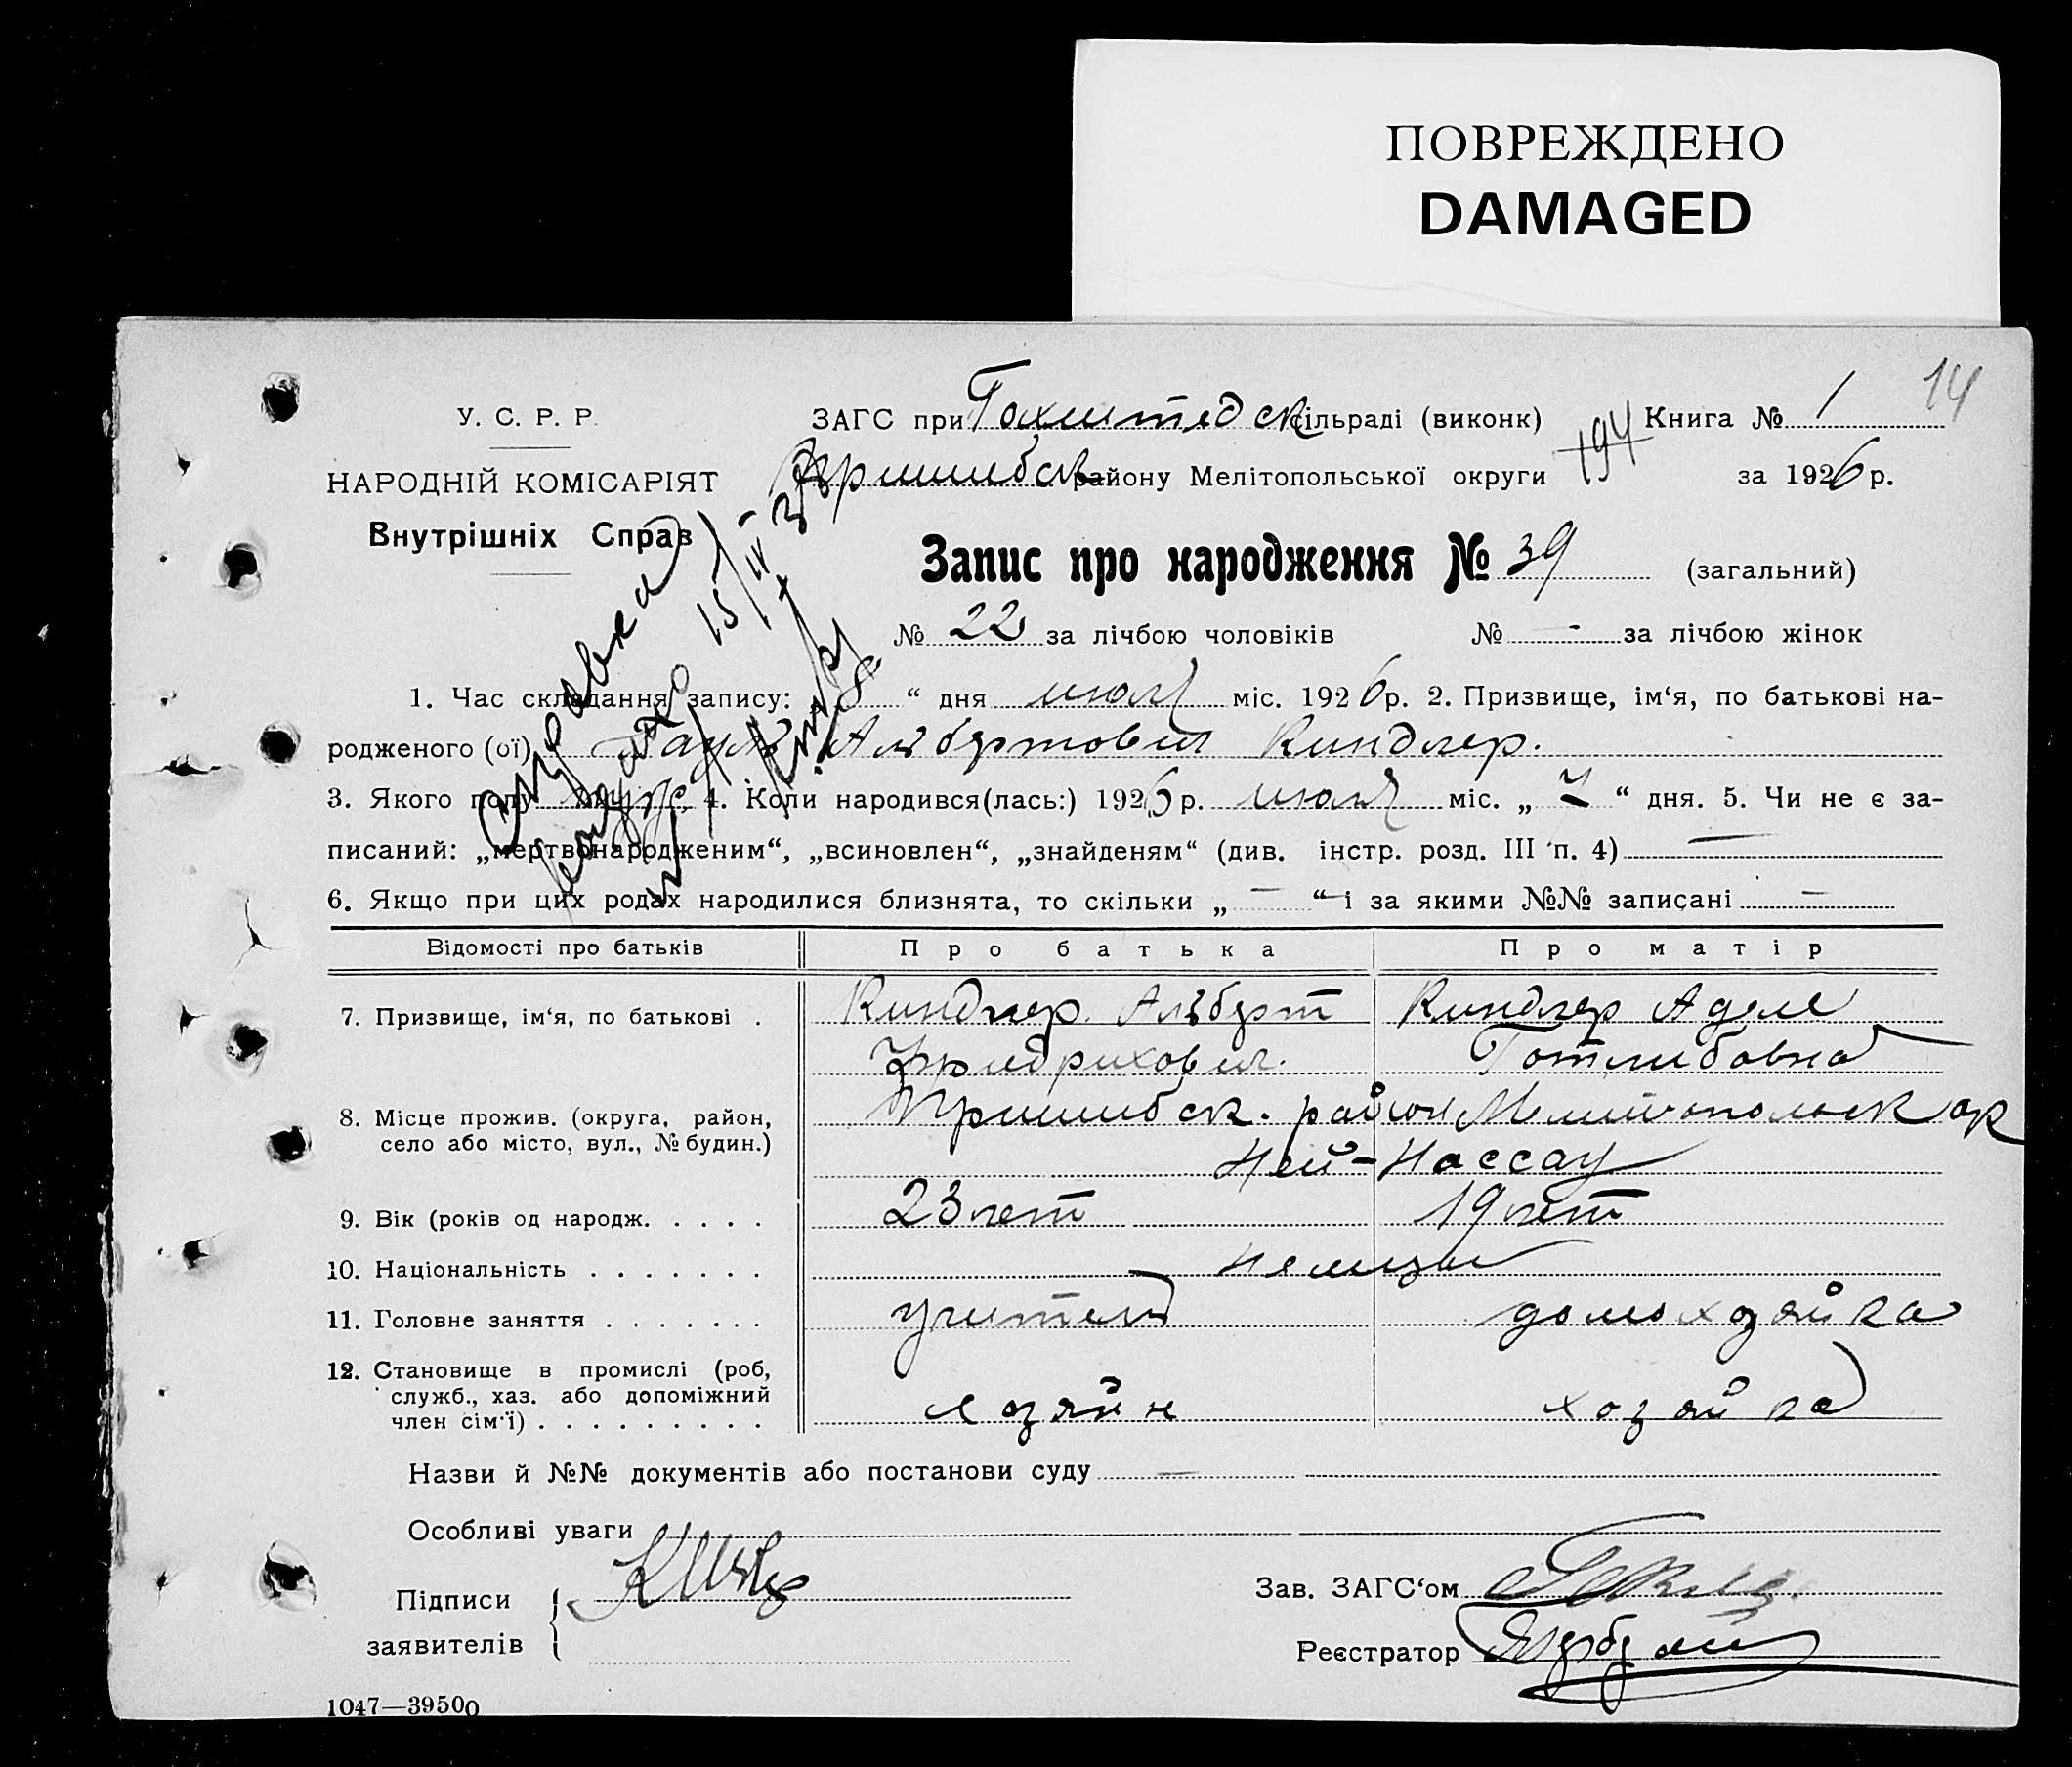 ПОВРЕЖДЕНО
DAMAGED
14
У. С. Р. Р.
ЗАГС при Гохштедск сільраді (виконк)
Книга № 1
НАРОДНІЙ КОМІСАРІЯТ
Пришибск району Мелітопольської округи
194
за 1926 р.
Внутрішніх Справ
Запис про народження № 39 (загальний)
№ 22 за лічбою чоловіків № - за лічбою жінок
справка
15/IV 3
1. Час складання запису: „8“ дня июля міс. 1926 р. 2. Призвище, ім‘я, по батькові на-
родженого (ої) Пауль Альбертович Киндлер.
3. Якого полу муж. 4. Коли народився(лась:) 1926 р. июля міс. „ “ дня. 5. Чи не є за-
писаний: „мертвонародженим“, „всиновлен“, „знайденям“ (див. інстр. розд. III п. 4) —
6. Якщо при цих родах народилися близнята, то скільки „ — “ і за якими №№ записані —
Відомості про батьків Про батька Про матір
7. Призвище, ім‘я, по батькові . Киндлер Альберт Киндлер Аделе
Фридрихович. Готлибовна
8. Місце прожив. (округа, район, Пришибск. район Мелитопольск ок
село або місто, вул., № будин.) Ней-Нассау
9. Вік (років од народж. . . . . 23 лет 19 лет
10. Національність . . . . . . . немцы
11. Головне заняття . . . . . . . учитель домохозяйка
12. Становище в промислі (роб,
служб., хаз. або допоміжний
член сім‘ї) . . . . . . . . . хозяин хозяйка
Назви й №№ документів або постанови суду —
Особливі уваги
Підписи
заявителів
Зав. ЗАГС‘ом
Реєстратор
1047—39500